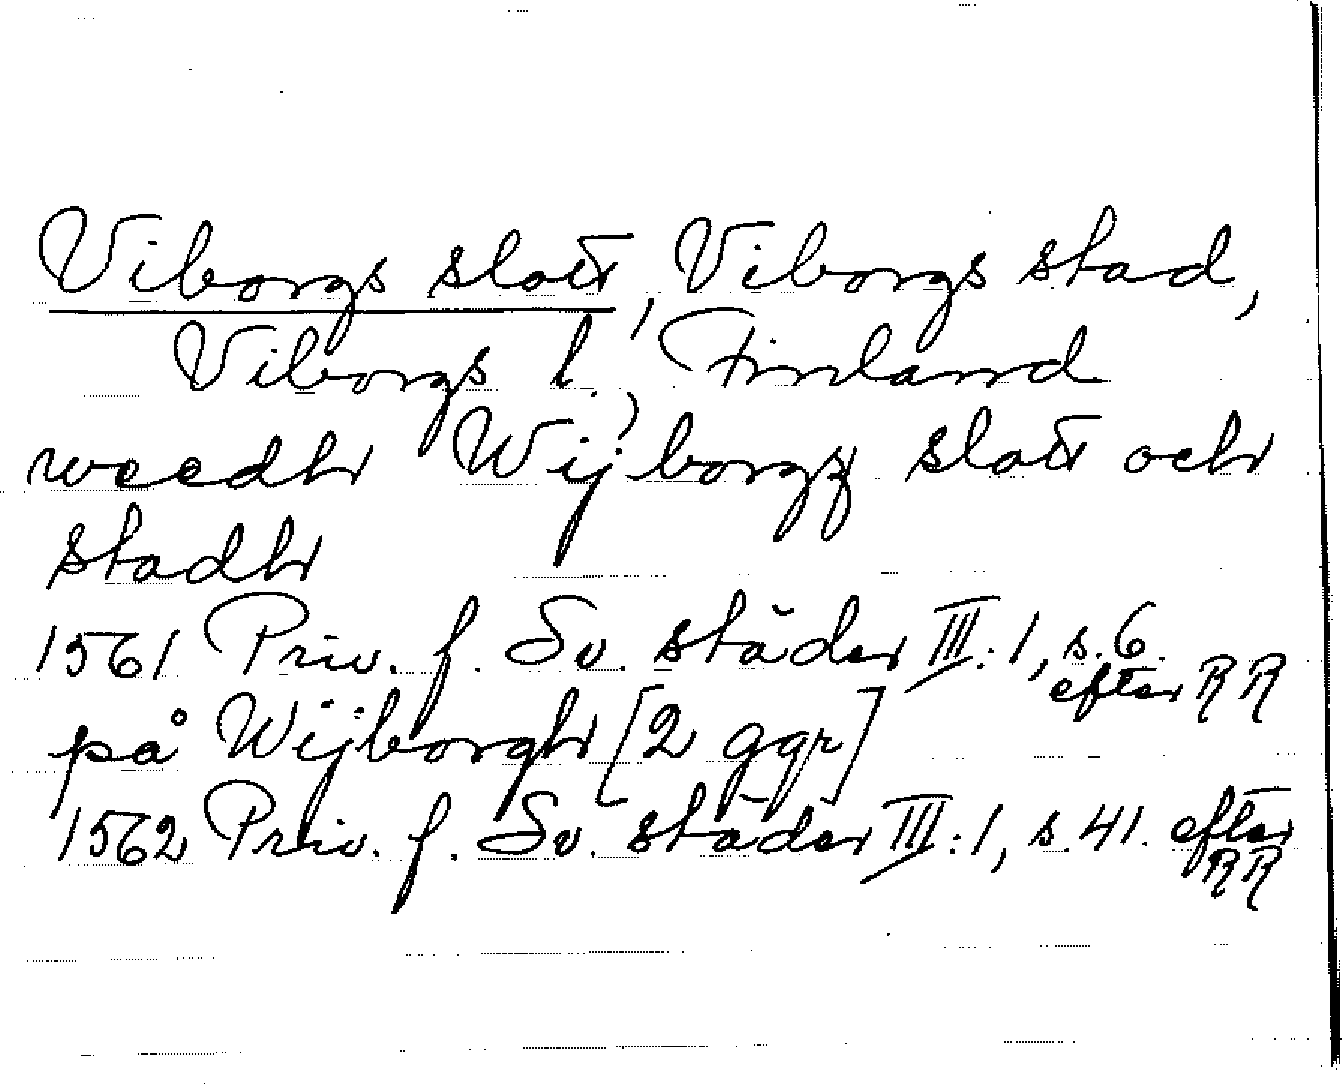 Viborgs slott, Viborgs stad,
Viborgs l., Finland
weedh Wijborgz slott och
stadh
1561 Priv. f. Sv. städer III:1, s. 6.
efter RR
på Wijborgh [2 ggr]
1562 Priv. f. Sv. städer III:1, s. 41. efter
RR